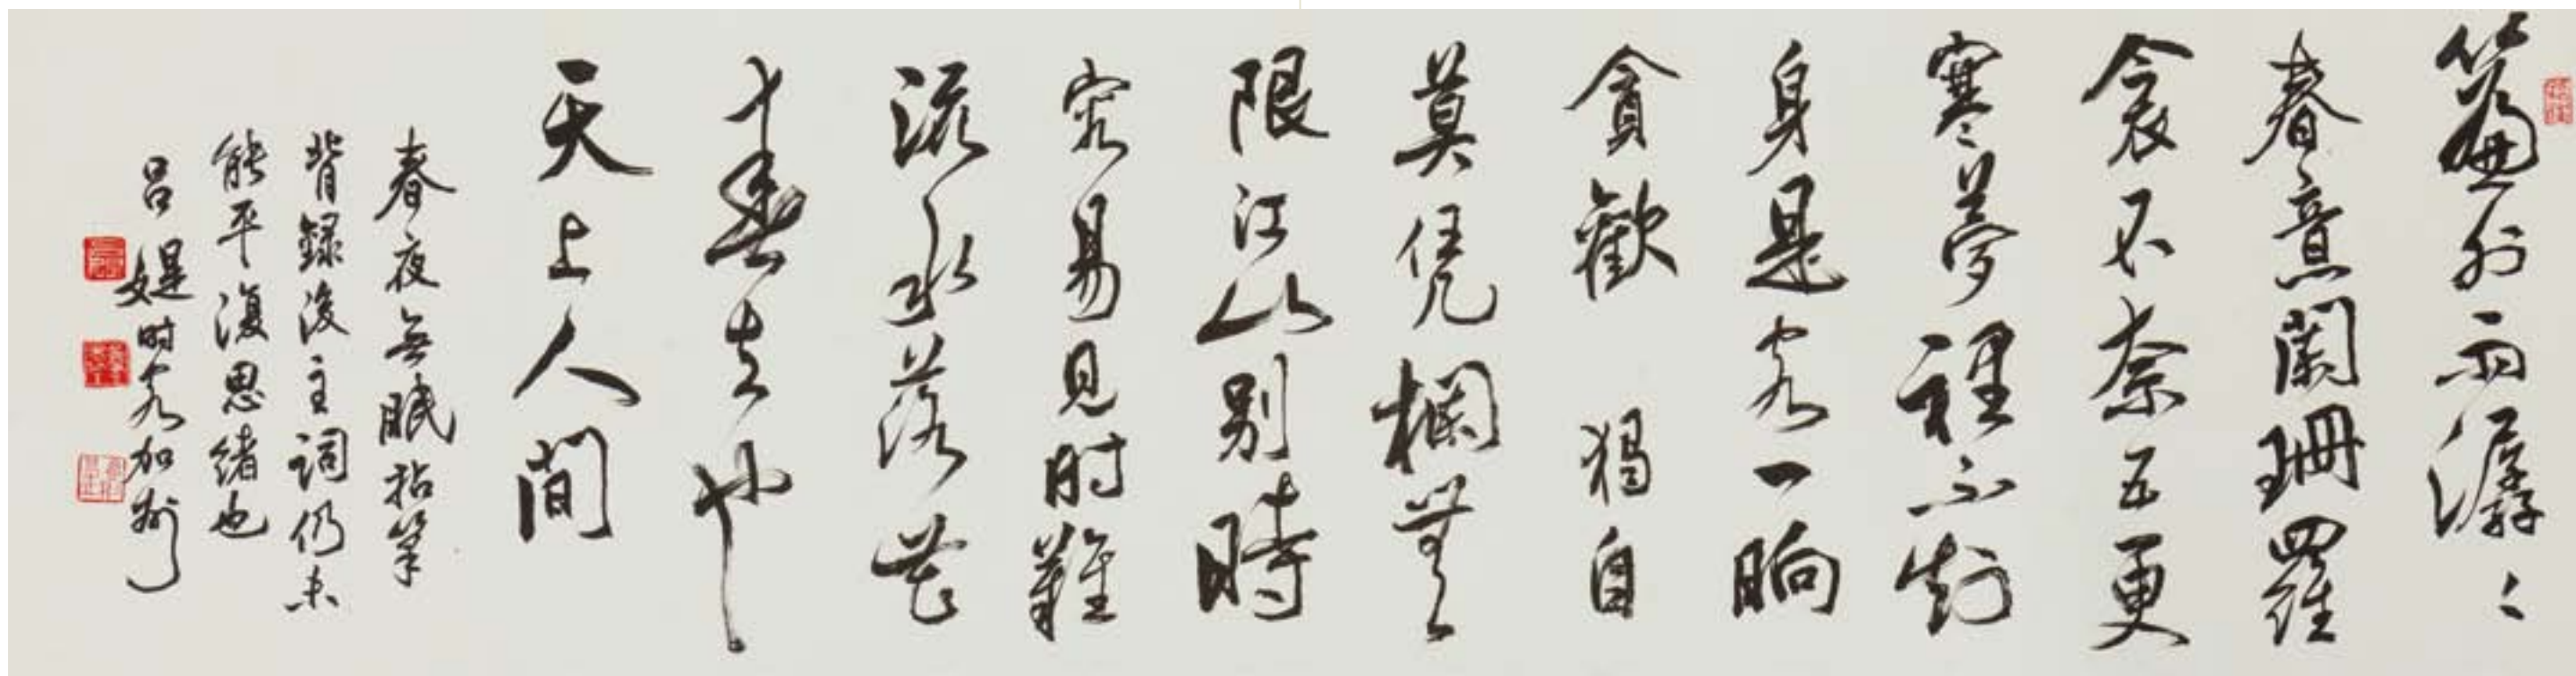 簾外雨潺々
春意闌珊羅
衾不奈五更
寒夢裡不知
身是客一晌
貪歡 獨自
莫凭欄無
限江山別時
容易見时難
流水落花
春去也
天上人間
春夜無眠拈筆
背録後主詞仍未
能平復思緒也
吕媞时客加州